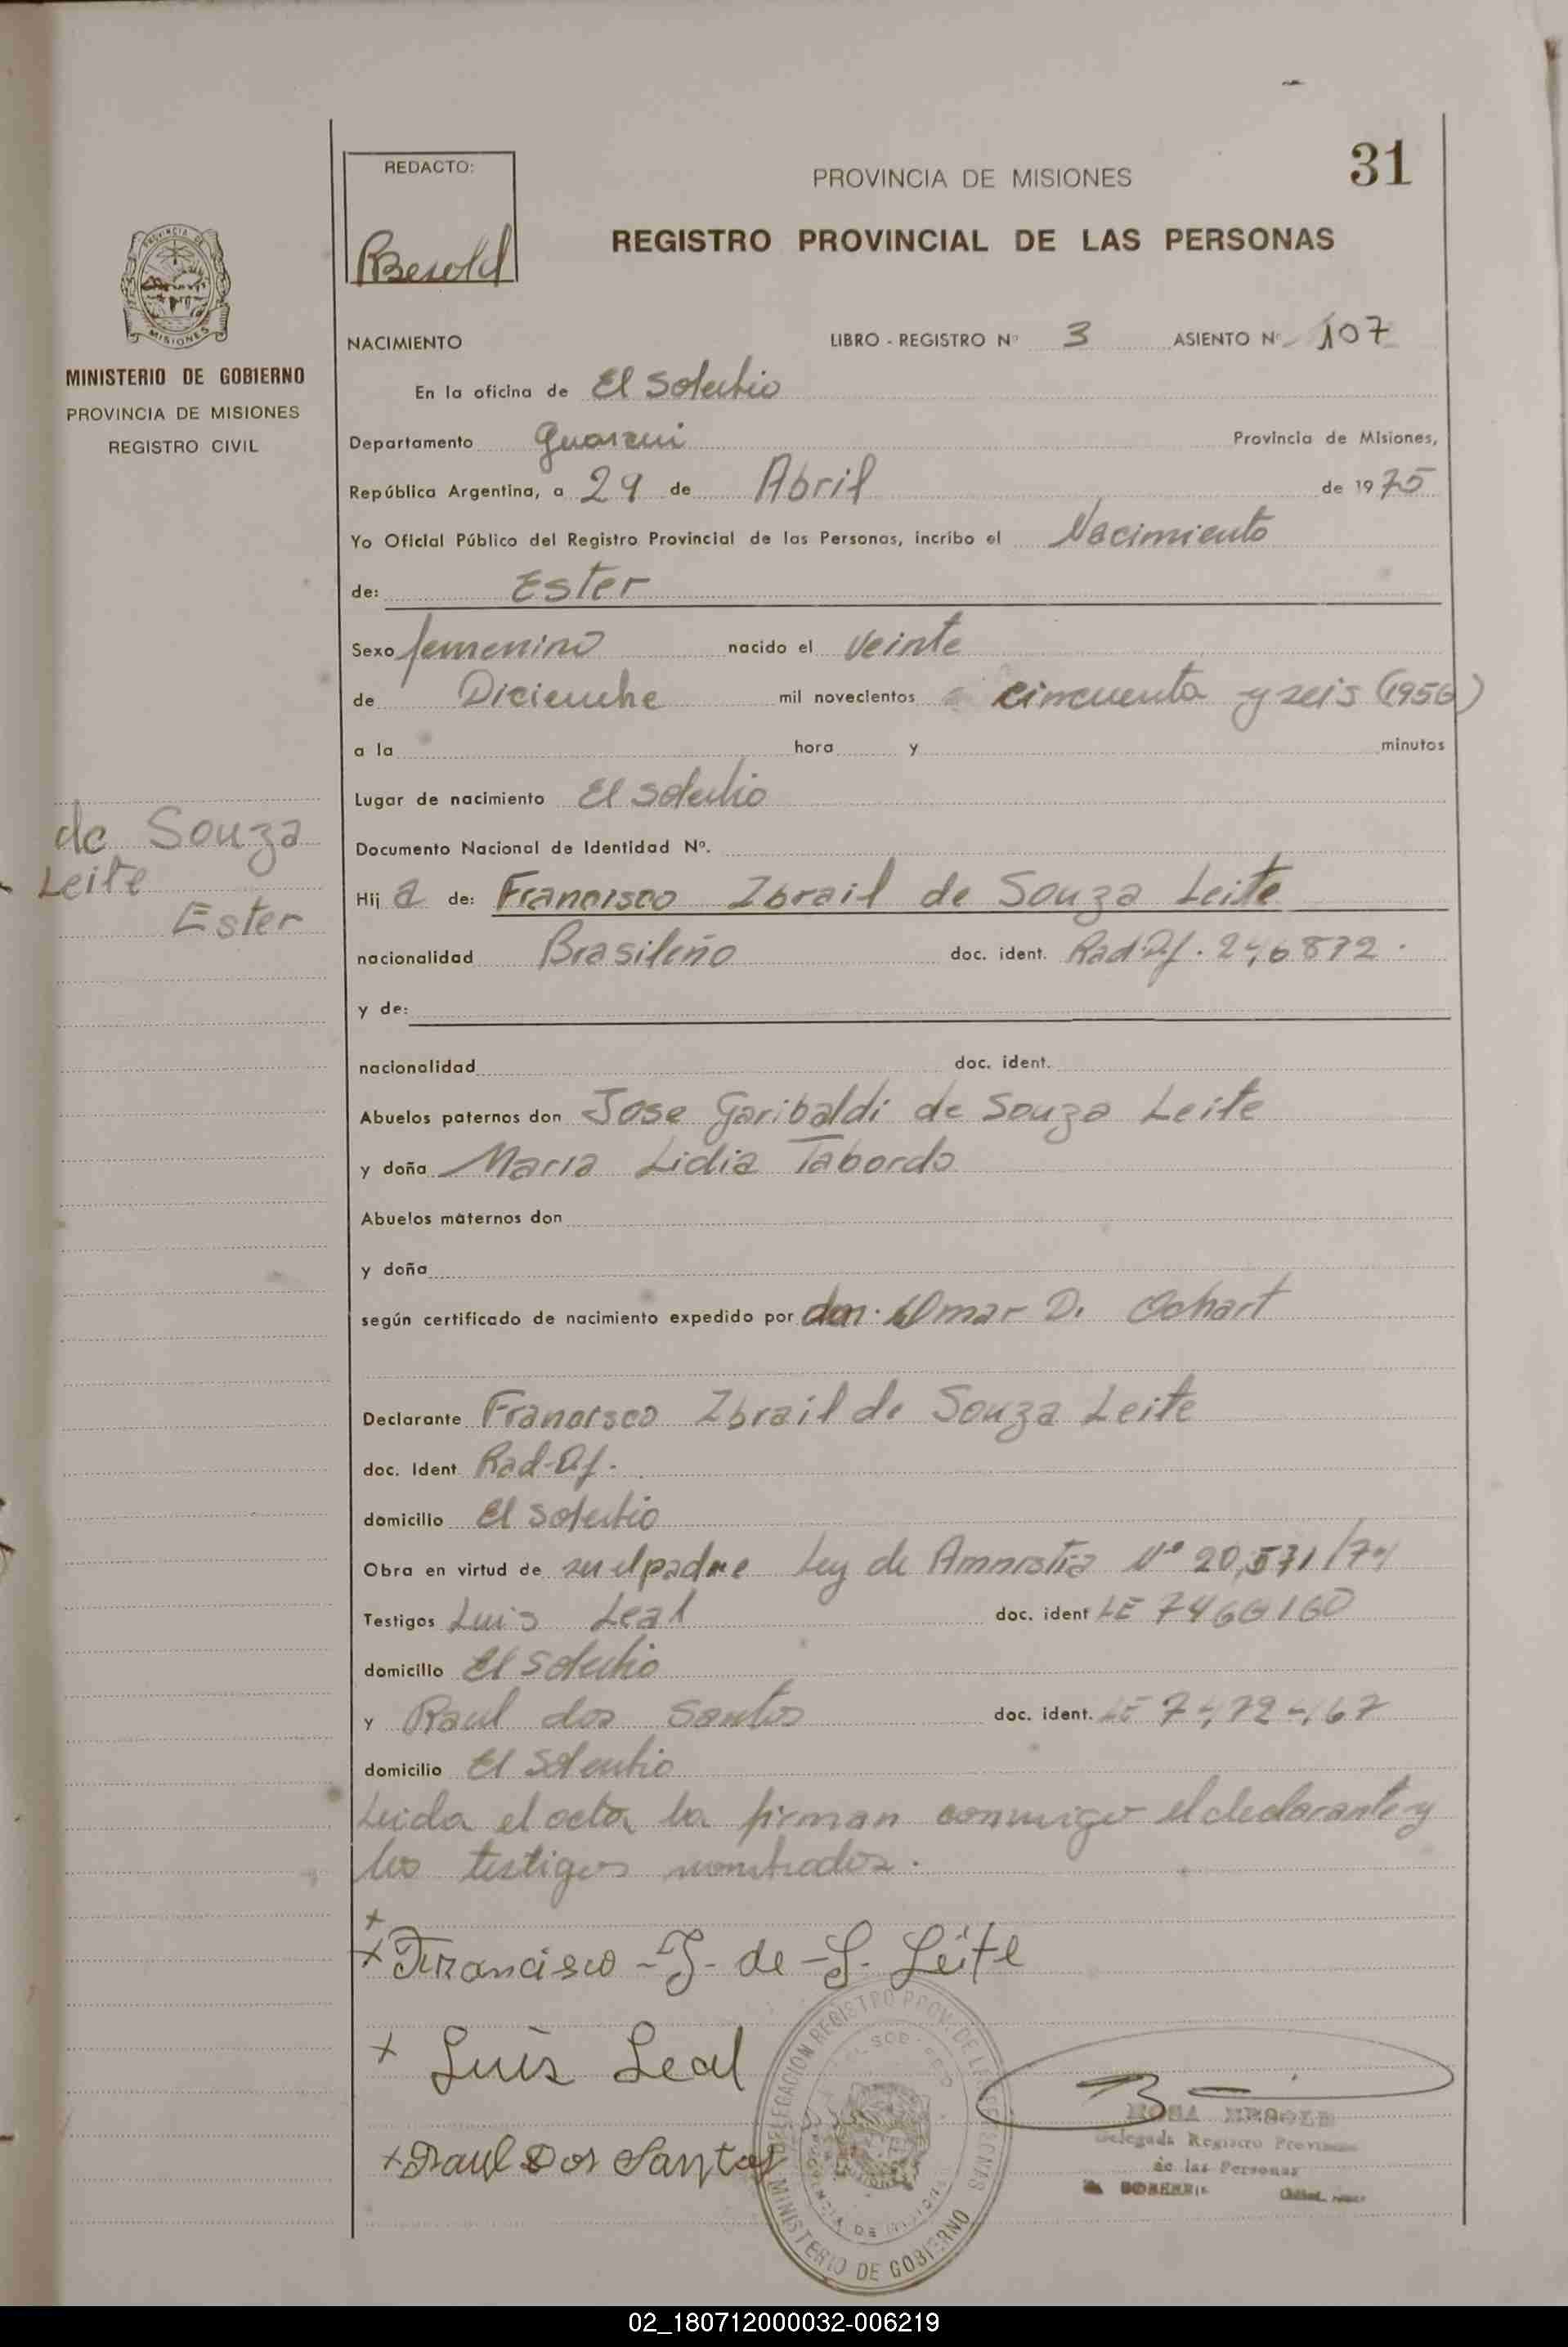 31
REDACTO:
PROVINCIA DE MISIONES
REGISTRO PROVINCIAL DE LAS PERSONAS
RBesold
MINISTERIO DE GOBIERNO
PROVINCIA DE MISIONES
REGISTRO CIVIL
NACIMIENTO LIBRO - REGISTRO Nº 3 ASIENTO Nº 107
En la oficina de El Soberbio
Departamento Guarani Provincia de Misiones,
República Argentina, a 29 de Abril de 1975
Yo Oficial Público del Registro Provincial de las Personas, incribo el Nacimiento
de: Ester
Sexo femenino nacido el veinte
de Diciembre mil novecientos cincuenta y seis (1956)
a la hora y minutos
Lugar de nacimiento El Soberbio
de Souza
Leite
Ester
Documento Nacional de Identidad Nº.
Hij a de: Francisco Zbrail de Souza Leite
nacionalidad Brasileño doc. ident. Rad-Df.
y de:
nacionalidad doc. ident.
Abuelos paternos don Jose Garibaldi de Souza Leite
y doña Maria Lidia Tabordo
Abuelos maternos don
y doña
según certificado de nacimiento expedido por don Omar D. Ochart
Declarante Francisco Zbrail de Souza Leite
doc. Ident Rad-Df.
domicilio El Soberbio
Obra en virtud de ser el padre Ley de Amnistia Nº 20,571/74
Testigos Luis Leal doc. ident LE 7466160
domicilio El Soberbio
y Raul dos Santos doc. ident. LE
domicilio El Soberbio
Leida el acta la firman conmigo el declarante y
los testigos nombrados.
Francisco - J - de - S. Leite
Luis Leal
Raul Dos Santos
DELEGACION REGISTRO PROV. DE LAS PERSONAS
MINISTERIO DE GOBIERNO
Delegada Registro Provincial
de las Personas
02_180712000032-006219